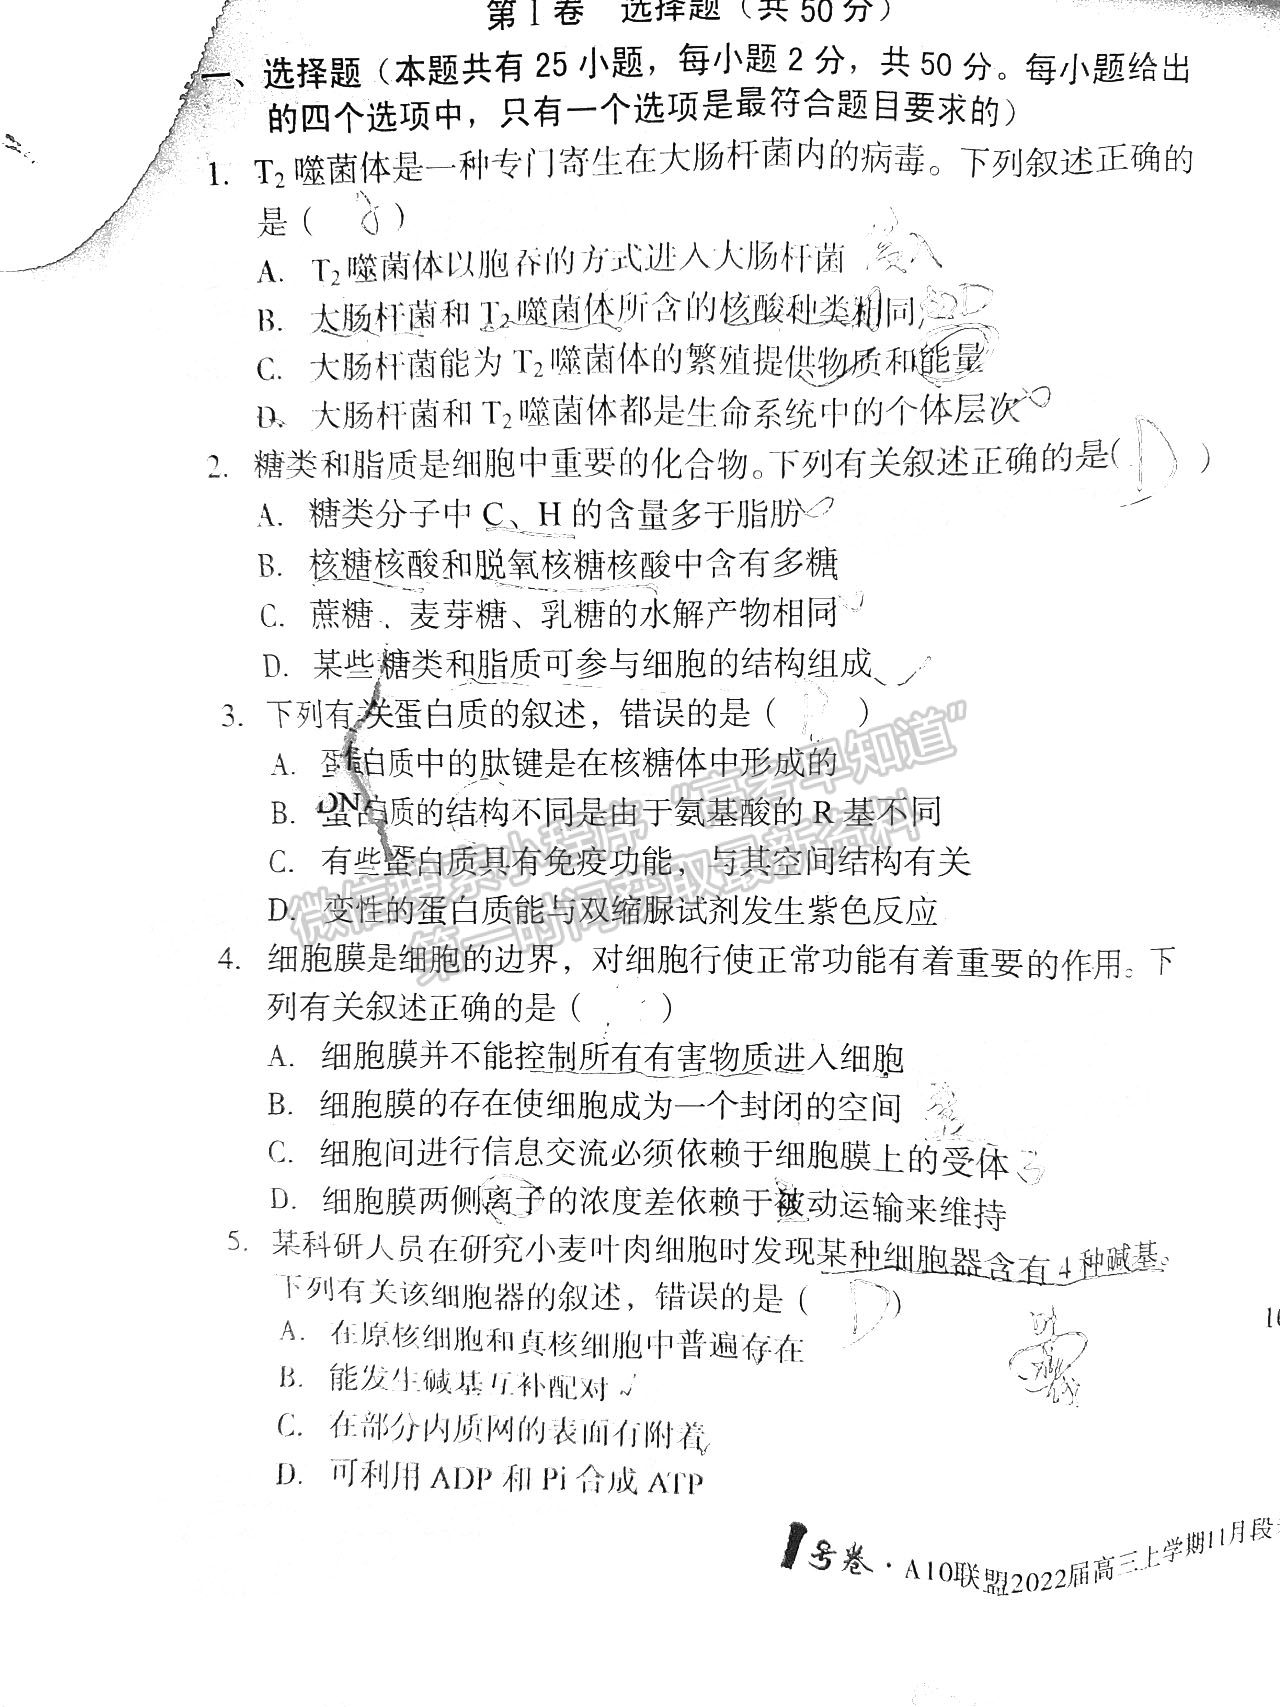 第Ⅰ卷 选择题（共50分）
一、选择题（本题共有25小题，每小题2分，共50分。每小题给出
的四个选项中，只有一个选项是最符合题目要求的）
1. T₂噬菌体是一种专门寄生在大肠杆菌内的病毒。下列叙述正确的
是（ ）
A. T₂噬菌体以胞吞的方式进入大肠杆菌
B. 大肠杆菌和T₂噬菌体所含的核酸种类相同
C. 大肠杆菌能为T₂噬菌体的繁殖提供物质和能量
D. 大肠杆菌和T₂噬菌体都是生命系统中的个体层次
2. 糖类和脂质是细胞中重要的化合物。下列有关叙述正确的是（ D ）
A. 糖类分子中C、H的含量多于脂肪
B. 核糖核酸和脱氧核糖核酸中含有多糖
C. 蔗糖、麦芽糖、乳糖的水解产物相同
D. 某些糖类和脂质可参与细胞的结构组成
3. 下列有关蛋白质的叙述，错误的是（ ）
A. 蛋白质中的肽键是在核糖体中形成的
B. 蛋白质的结构不同是由于氨基酸的R基不同
C. 有些蛋白质具有免疫功能，与其空间结构有关
D. 变性的蛋白质能与双缩脲试剂发生紫色反应
微信搜索小程序“高考早知道”
第一时间获取最新资料
4. 细胞膜是细胞的边界，对细胞行使正常功能有着重要的作用。下
列有关叙述正确的是（ ）
A. 细胞膜并不能控制所有有害物质进入细胞
B. 细胞膜的存在使细胞成为一个封闭的空间
C. 细胞间进行信息交流必须依赖于细胞膜上的受体
D. 细胞膜两侧离子的浓度差依赖于被动运输来维持
5. 某科研人员在研究小麦叶肉细胞时发现某种细胞器含有4种碱基。
下列有关该细胞器的叙述，错误的是（ D ）
A. 在原核细胞和真核细胞中普遍存在
B. 能发生碱基互补配对
C. 在部分内质网的表面有附着
D. 可利用ADP和Pi合成ATP
1号卷·A10联盟2022届高三上学期11月段